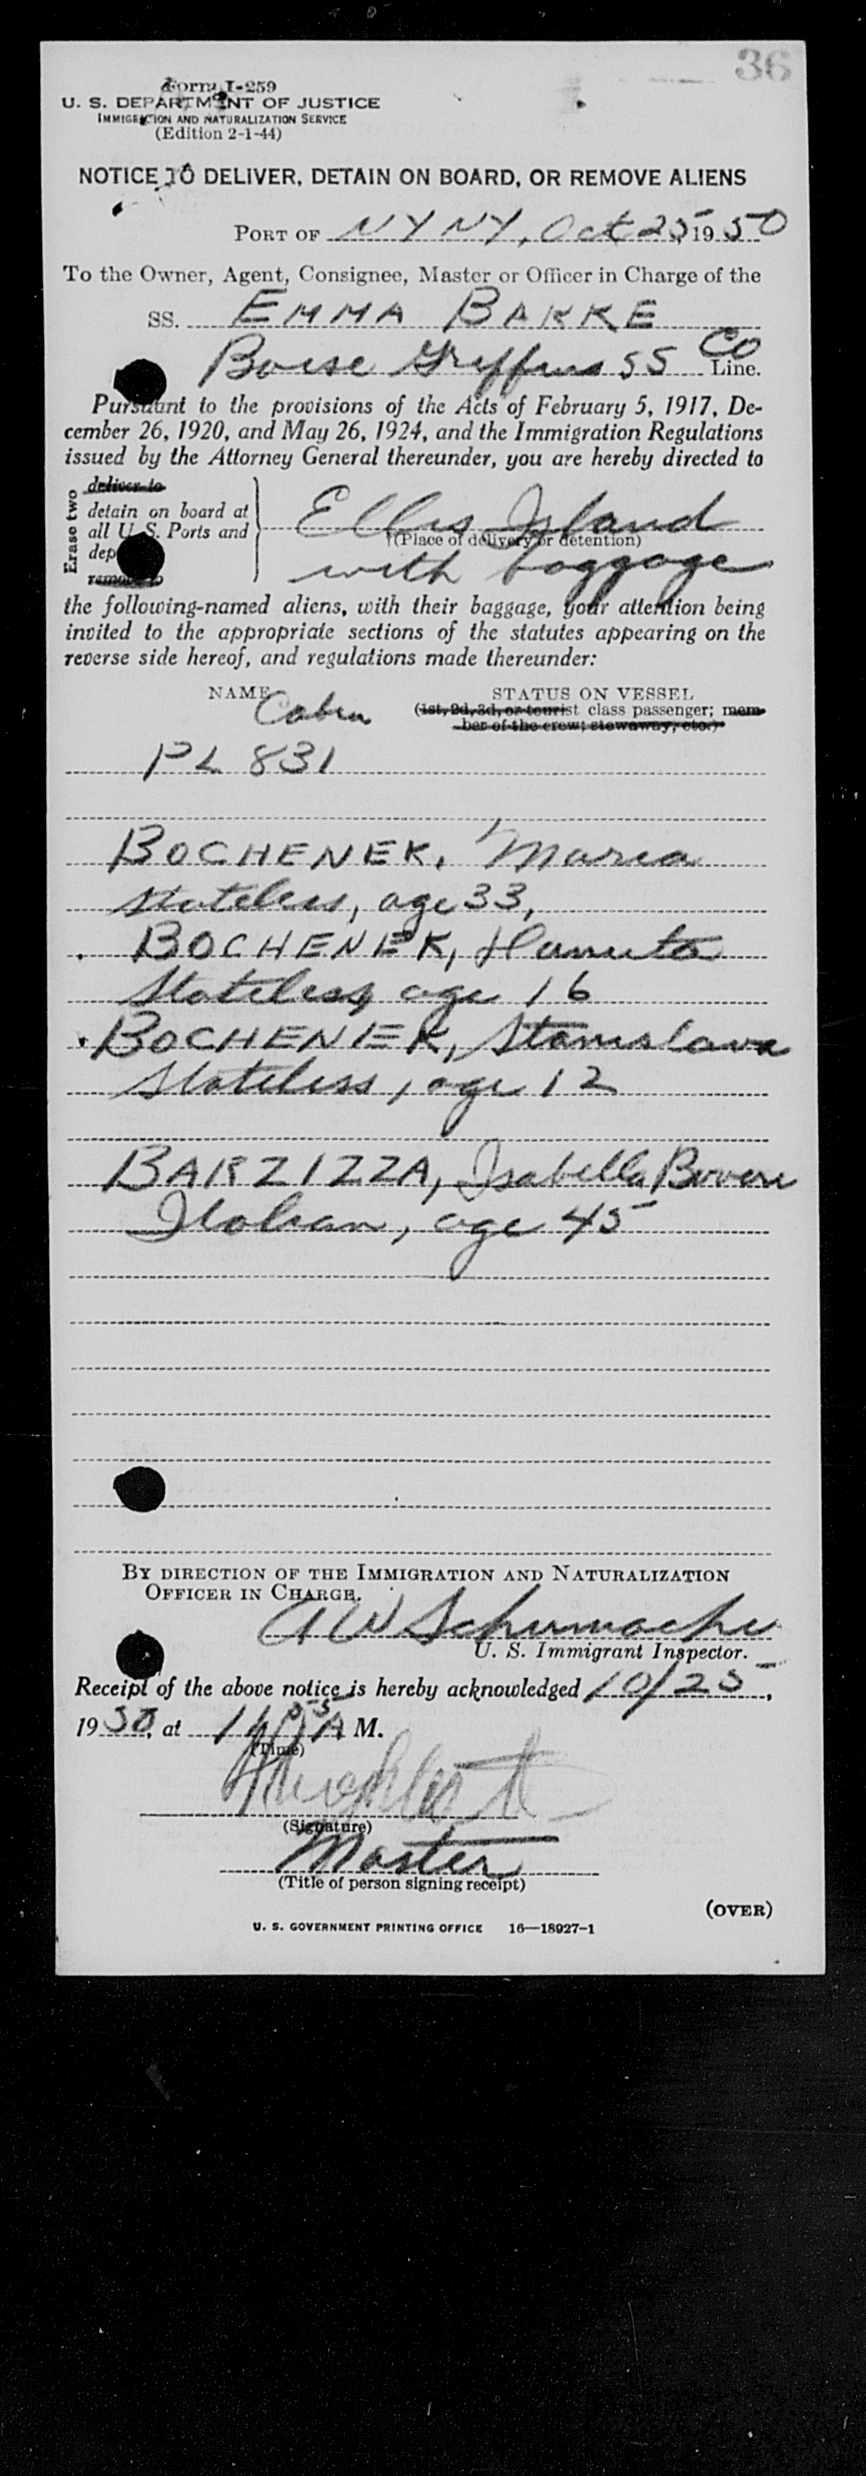 36
Form I-259
U. S. DEPARTMENT OF JUSTICE
IMMIGRATION AND NATURALIZATION SERVICE
(Edition 2-1-44)
NOTICE TO DELIVER, DETAIN ON BOARD, OR REMOVE ALIENS
PORT OF NY NY, Oct 25 1950
To the Owner, Agent, Consignee, Master or Officer in Charge of the
SS. EMMA BAKKE
Boise Griffins SS Co Line.
Pursuant to the provisions of the Acts of February 5, 1917, De-
cember 26, 1920, and May 26, 1924, and the Immigration Regulations
issued by the Attorney General thereunder, you are hereby directed to
Erase two
deliver to
detain on board at
all U. S. Ports and
dep
remove to
Ellis Island
(Place of delivery or detention)
with baggage
the following-named aliens, with their baggage, your attention being
invited to the appropriate sections of the statutes appearing on the
reverse side hereof, and regulations made thereunder:
NAME STATUS ON VESSEL
Cabin (1st, 2d, 3d, or tourist class passenger; mem-
ber of the crew; stowaway, etc.)
PL 831
BOCHENEK, Maria
Stateless, age 33,
BOCHENEK, Danuta
Stateless, age 16
BOCHENEK, Stanislawa
Stateless, age 12
BARZIZZA, Isabella
Italian, age 45
BY DIRECTION OF THE IMMIGRATION AND NATURALIZATION
OFFICER IN CHARGE.
A W Schumacher
U. S. Immigrant Inspector.
Receipt of the above notice is hereby acknowledged 10/25,
1950, at A M.
(Time)
(Signature)
Master
(Title of person signing receipt)
(OVER)
U. S. GOVERNMENT PRINTING OFFICE 16—18927-1